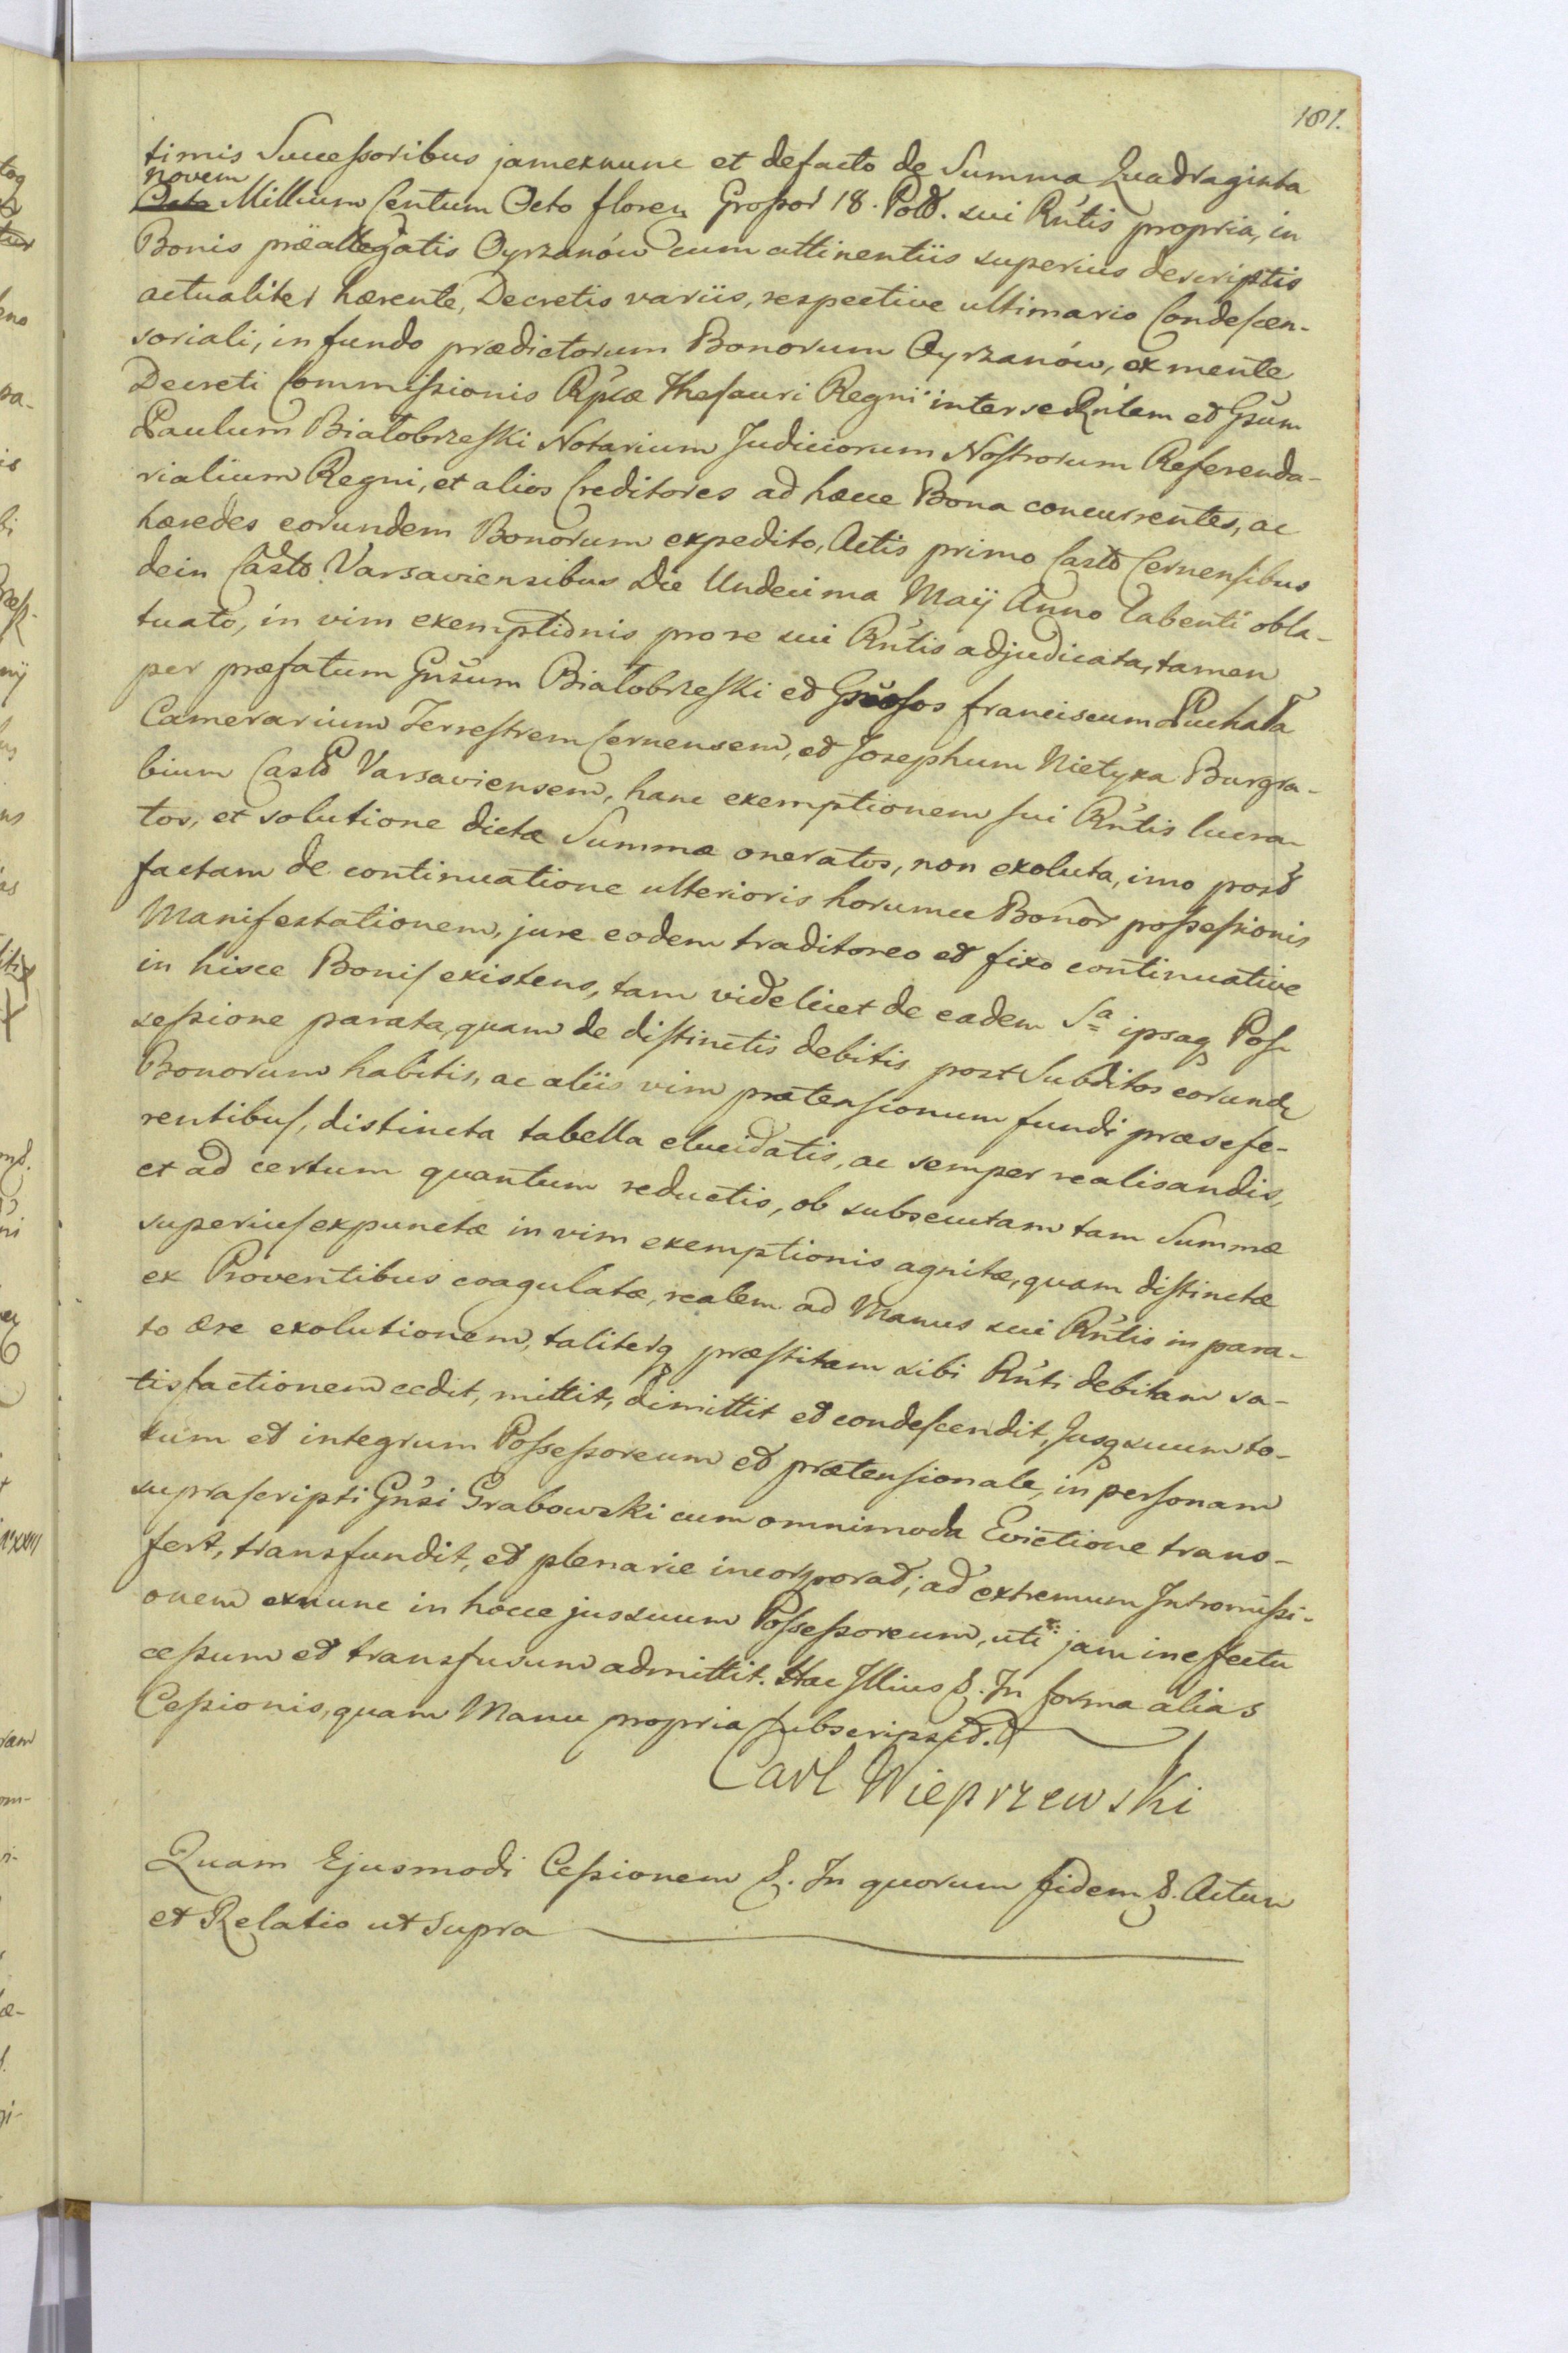 181.
timis Successoribus jamexnunc et defacto de Summa Quadraginta
novem
Octo Millium Centum Octo floren Grossor 18. Pold. sui Rntis propria, in
Bonis præallegatis Oyrzanów cum attinentiis superius descriptis
actualiter hærente, Decretis variis, respective ultimario Condescen-
soriali, in fundo prædictorum Bonorum Oyrzanów, ex mente
Decreti Commissionis Rpcæ Thesauri Regni inter se Rntem et Gsum
Paulum Białobrzeski Notarium Judiciorum Nostrorum Referenda-
rialium Regni, et alios Creditores ad hæcce Bona concurrentes, ac
hæredes eorundem Bonorum expedito, Actis primo Castr Cernensibus
dein Castr Varsaviensibus Die Undecima Maij Anno labenti obla-
tuato, in vim exemptionis pro re sui Rntis adjudicata, tamen
per præfatum Gnsum Białobrzeski et Gnosos Franciscum Puchała
Camerarium Terrestrem Cernensem, et Josephum Nietyxa Burgra-
bium Castr Varsaviensem, hanc exemptionem sui Rntis lucra-
tos, et solutione dictæ Summæ oneratos, non exoluta, imo post
factam de continuatione ulterioris horumce Bonor possessionis
Manifestationem, jure eodem traditoreo et fixo continuative
in hisce Bonis existens, tam videlicet de eadem Sa ipsaq Pos-
sessione parata, quam de distinctis debitis post Subditos eorund
Bonorum habitis, ac aliis vim prætensionum fundi præsefe-
rentibus, distincta tabella elucidatis, ac semper realisandis,
et ad certum quantum reductis, ob subsecutam tam Summæ
superius expunctæ in vim exemptionis agnitæ, quam distinctæ
ex Proventibus coagulatæ, realem ad Manus sui Rntis in para-
to ære exolutionem, taliterq præstitam sibi Rnti debitam sa-
tisfactionem cedit, mittit, dimittit et condescendit, Jusq suum to-
tum et integrum Possessoreum et prætensionale, in personam
suprascripti Gnsi Grabowski cum omnimoda Evictione trans-
fert, transfundit, et plenarie incorporat; ad extremum Intromissi-
onem exnunc in hocce jus suum Possessoreum, uti jam in effectu
cessum et transfusum admittit. Hac Illius &. In forma alias
Cessionis, quam Manu propria subscripsit.
Carl Wieprzewski
Quam Ejusmodi Cessionem &. In quorum fidem &. Actum
et Relatio ut supra